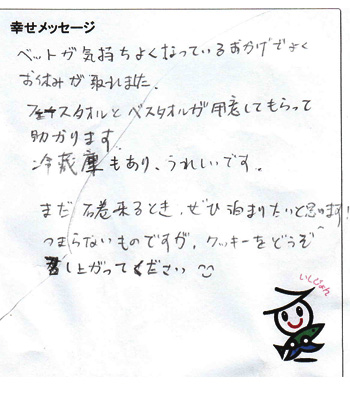 幸せメッセージ
ベットが気持ちよくなっているおかげでよく
お休みが取れました。
フェイスタオルとバスタオルが用意してもらって
助かります。
冷蔵庫もあり、うれしいです。
まだ石巻来るとき、ぜひ泊まりたいと思います!
つまらないものですが、クッキーをどうぞ
召し上がってください
いしぴょん